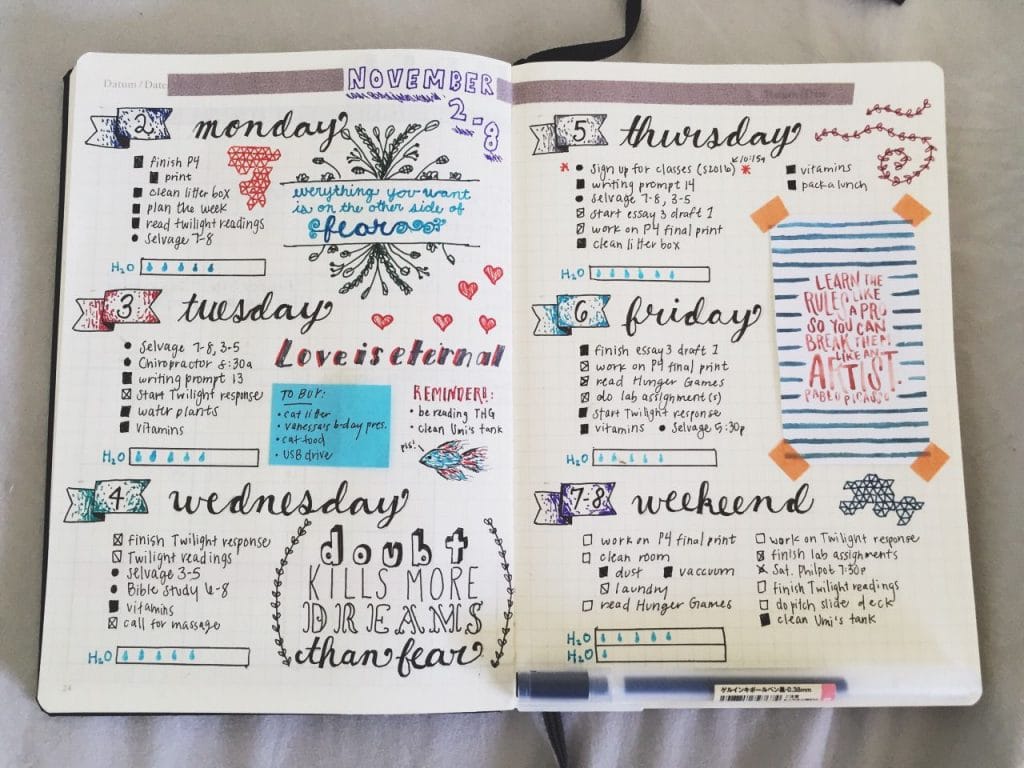 Datum / Date
NOVEMBER
2-8
2 monday
finish P4
print
clean litter box
plan the week
read twilight readings
Selvage 7-8
H2O
everything you want
is on the other side of
fear
3 tuesday
Selvage 7-8, 3-5
Chiropractor 8:30a
writing prompt 13
Start Twilight response
water plants
vitamins
H2O
Love is eternal
TO BUY:
cat litter
vanessa's b-day pres.
cat food
USB drive
REMINDER!:
be reading THG
clean Umi's tank
pls!
4 wednesday
finish Twilight response
Twilight readings
Selvage 3-5
Bible study 6-8
vitamins
call for massage
H2O
doubt
KILLS MORE
DREAMS
than fear
24
5 thursday
10:15a
Sign up for classes (S2016)
writing prompt 14
Selvage 7-8, 3-5
Start essay 3 draft 1
work on P4 final print
clean litter box
vitamins
pack a lunch
H2O
6 friday
finish essay 3 draft 1
work on P4 final print
read Hunger Games
do lab assignment(s)
start Twilight response
vitamins
Selvage 5:30p
H2O
LEARN THE
RULES LIKE
A PRO
SO YOU CAN
BREAK THEM
LIKE AN
ARTIST.
PABLO PICASSO
7-8 weekeend
work on P4 final print
clean room
dust
vaccuum
laundry
read Hunger Games
work on Twilight response
finish lab assignments
Sat. Philpot 7:30p
finish Twilight readings
do pitch slide deck
clean Umi's tank
H2O
H2O
ゲルインキボールペン黒・0.38mm